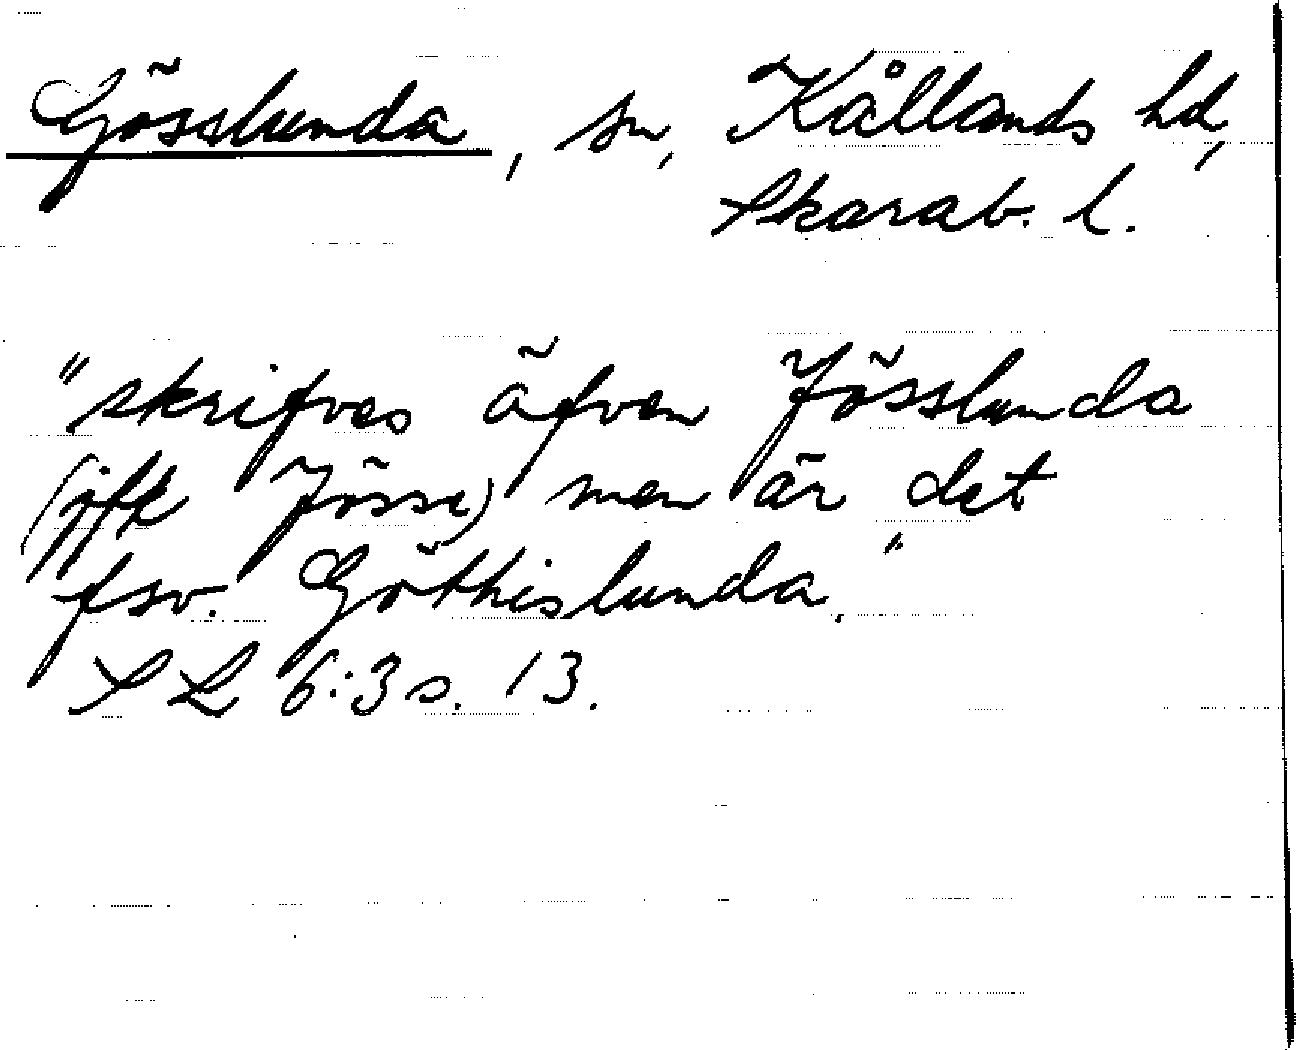 Gösslunda, sn, Kållands hd,
Skarab. l.
"skrifves äfven Jösslunda
(jfr Jösse) men är det
fsv. Göthislunda."
SL 6:3 s. 13.